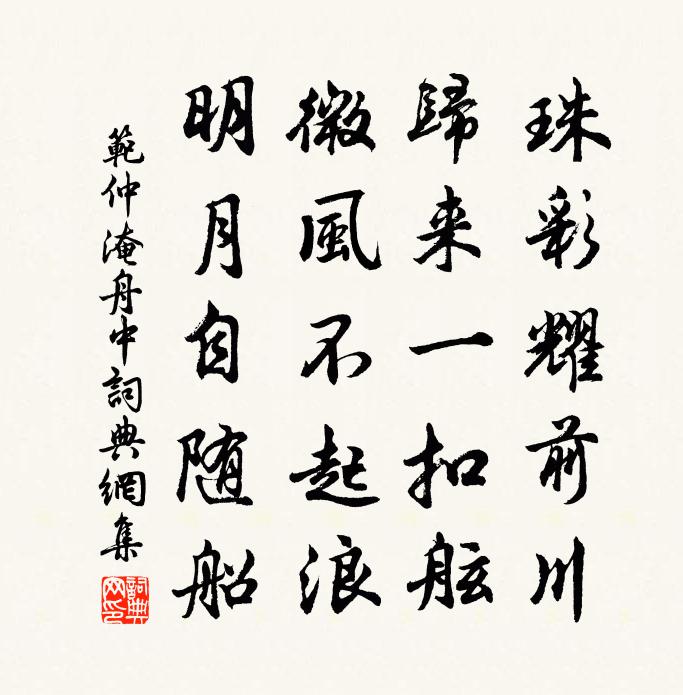 珠彩耀前川
歸来一扣舷
微風不起浪
明月自随船
範仲淹舟中詞典網集
詞典網印